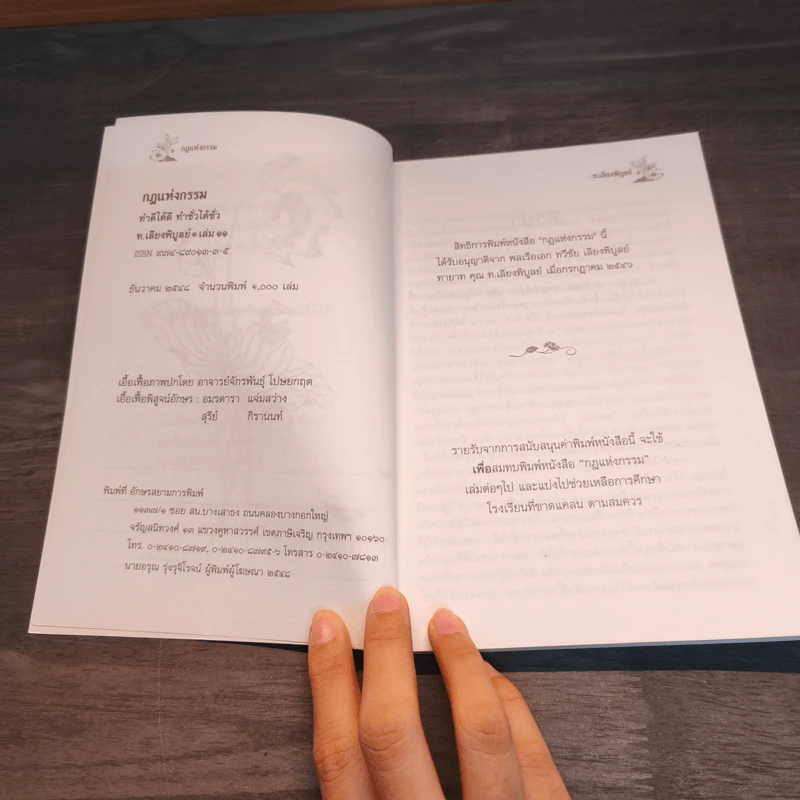 กฎแห่งกรรม
กฎแห่งกรรม
ทำดีได้ดี ทำชั่วได้ชั่ว
ท.เลียงพิบูลย์ • เล่ม ๑๑
ISBN ๙๗๔-๘๙๐๑๓-๓-๕
ธันวาคม ๒๕๔๘ จำนวนพิมพ์ ๑,๐๐๐ เล่ม
เอื้อเฟื้อภาพปกโดย อาจารย์จักรพันธุ์ โปษยกฤต
เอื้อเฟื้อพิสูจน์อักษร : อมรดารา แจ่มสว่าง
สุรีย์ กิรานนท์
พิมพ์ที่ อักษรสยามการพิมพ์
๑๑๓๗/๑ ซอย สน.บางเสาธง ถนนคลองบางกอกใหญ่
จรัญสนิทวงศ์ ๑๓ แขวงคูหาสวรรค์ เขตภาษีเจริญ กรุงเทพฯ ๑๐๑๖๐
โทร. ๐-๒๔๑๐-๘๗๑๙, ๐-๒๔๑๐-๘๗๙๕-๖ โทรสาร ๐-๒๔๑๐-๗๘๑๓
นายอรุณ รุ่งรุจิโรจน์ ผู้พิมพ์ผู้โฆษณา ๒๕๔๘
ท.เลียงพิบูลย์
สิทธิการพิมพ์หนังสือ "กฎแห่งกรรม" นี้
ได้รับอนุญาติจาก พลเรือเอก ทวีชัย เลียงพิบูลย์
ทายาท คุณ ท.เลียงพิบูลย์ เมื่อกรกฎาคม ๒๕๔๖
รายรับจากการสนับสนุนค่าพิมพ์หนังสือนี้ จะใช้
เพื่อสมทบพิมพ์หนังสือ "กฎแห่งกรรม"
เล่มต่อๆไป และแบ่งไปช่วยเหลือการศึกษา
โรงเรียนที่ขาดแคลน ตามสมควร